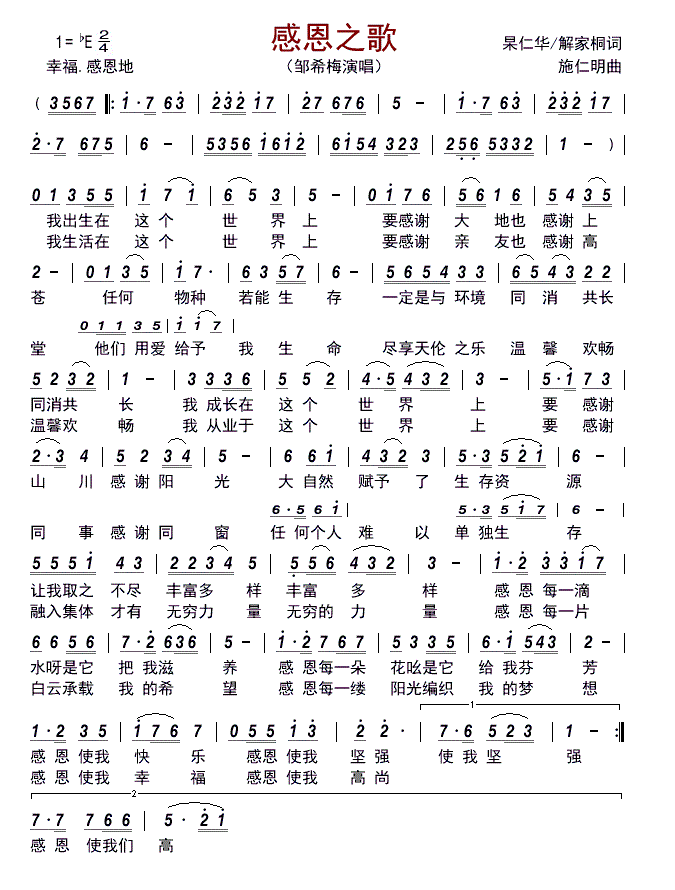 感恩之歌
1=♭E 2/4
杲仁华/解家桐词
幸福.感恩地
（邹希梅演唱）
施仁明曲
( 3567 |: 1·7 63 | 232 17 | 27 176 | 5 - | 1·7 63 | 232 17 |
2·7 675 | 6 - | 5356 1612 | 6154 323 | 256 5332 | 1 - ) |
01 355 | 1 7 1 | 6 5 3 | 5 - | 01 76 | 561 6 | 54 35 |
我出生在 这个 世 界 上 要感谢 大 地也 感谢上
我生活在 这个 世 界 上 要感谢 亲 友也 感谢高
2 - | 01 35 | 1 7· | 63 57 | 6 - | 565 433 | 6543 22 |
苍 任何 物种 若能 生 存 一定是与 环境 同 消 共长
011 35 | 11 7 |
堂 他们 用爱 给予 我 生 命 尽享天伦 之乐 温 馨 欢畅
52 32 | 1 - | 3 336 | 5 5 2 | 4·5 432 | 3 - | 5·1 73 |
同消共 长 我 成长在 这 个 世 界 上 要 感谢
温馨欢 畅 我 从业于 这 个 世 界 上 要 感谢
2·3 4 | 52 34 | 5 - | 6 61 | 43 23 | 5·3 521 | 6 - |
山 川 感谢 阳 光 大 自然 赋予 了 生 存资 源
6·5 61 | 5·35 521 |
同 事 感谢 同 窗 任 何个人 难 以 单 独生 存
5551 43 | 2234 5 | 556 432 | 3 - | 1·2 3317 |
让我取之 不尽 丰富多 样 丰富 多 样 感 恩 每一滴
融入集体 才有 无穷力 量 无穷的 力 量 感 恩 每一片
6656 | 7·2 636 | 5 - | 1·2 767 | 53 335 | 6·1 543 | 2 - |
水呀是它 把 我滋 养 感 恩每一朵 花吆是它 给 我芬 芳
白云承载 我 的希 望 感 恩每一缕 阳光编织 我 的梦 想
1·2 35 | 176 7 | 055 13 | 2 2· | 7·6 523 | 1 - :|
1
感 恩 使我 快 乐 感恩使我 坚强 使 我 坚 强
感 恩 使我 幸 福 感恩使我 高尚
2
7·7 766 | 1 | 5· 21 |
感 恩 使我们 高